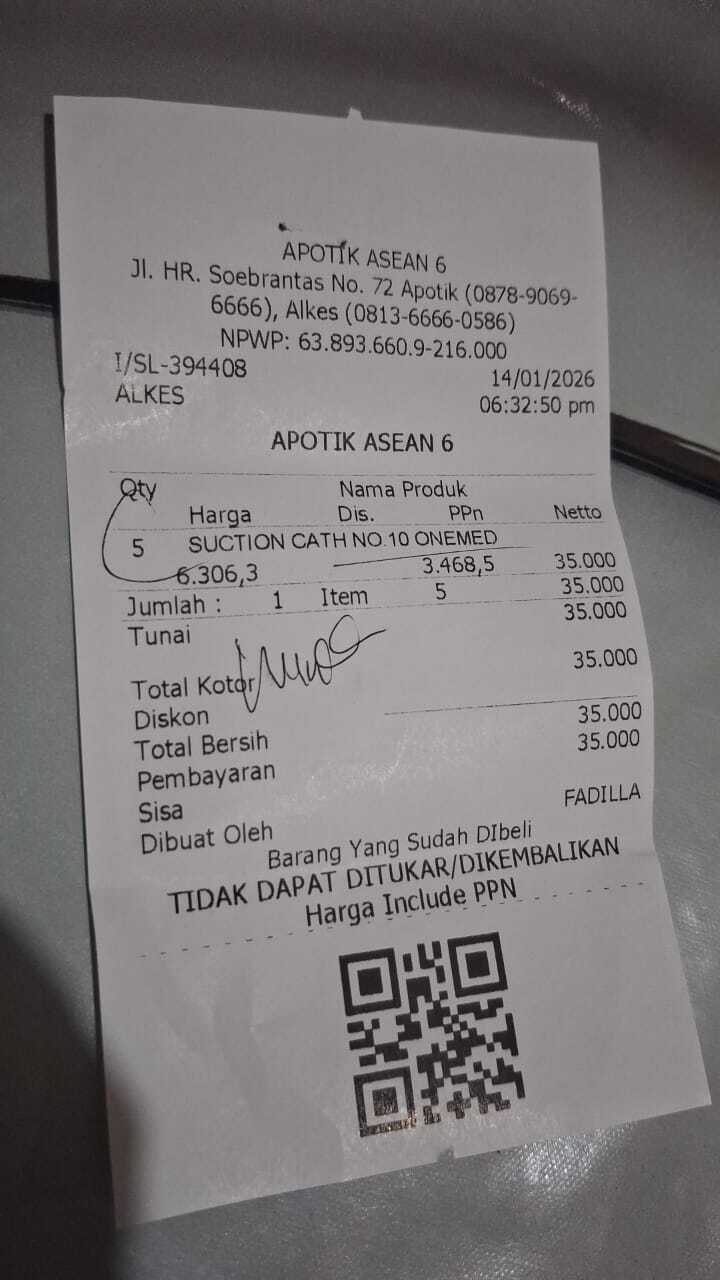 APOTIK ASEAN 6
Jl. HR. Soebrantas No. 72 Apotik (0878-9069-
6666), Alkes (0813-6666-0586)
NPWP: 63.893.660.9-216.000
I/SL-394408 14/01/2026
ALKES 06:32:50 pm
APOTIK ASEAN 6
Qty Nama Produk
Harga Dis. PPn Netto
5 SUCTION CATH NO.10 ONEMED
6.306,3 3.468,5 35.000
Jumlah : 1 Item 5 35.000
Tunai 35.000
Total Kotor 35.000
Diskon
Total Bersih 35.000
Pembayaran 35.000
Sisa
Dibuat Oleh FADILLA
Barang Yang Sudah DIbeli
TIDAK DAPAT DITUKAR/DIKEMBALIKAN
Harga Include PPN